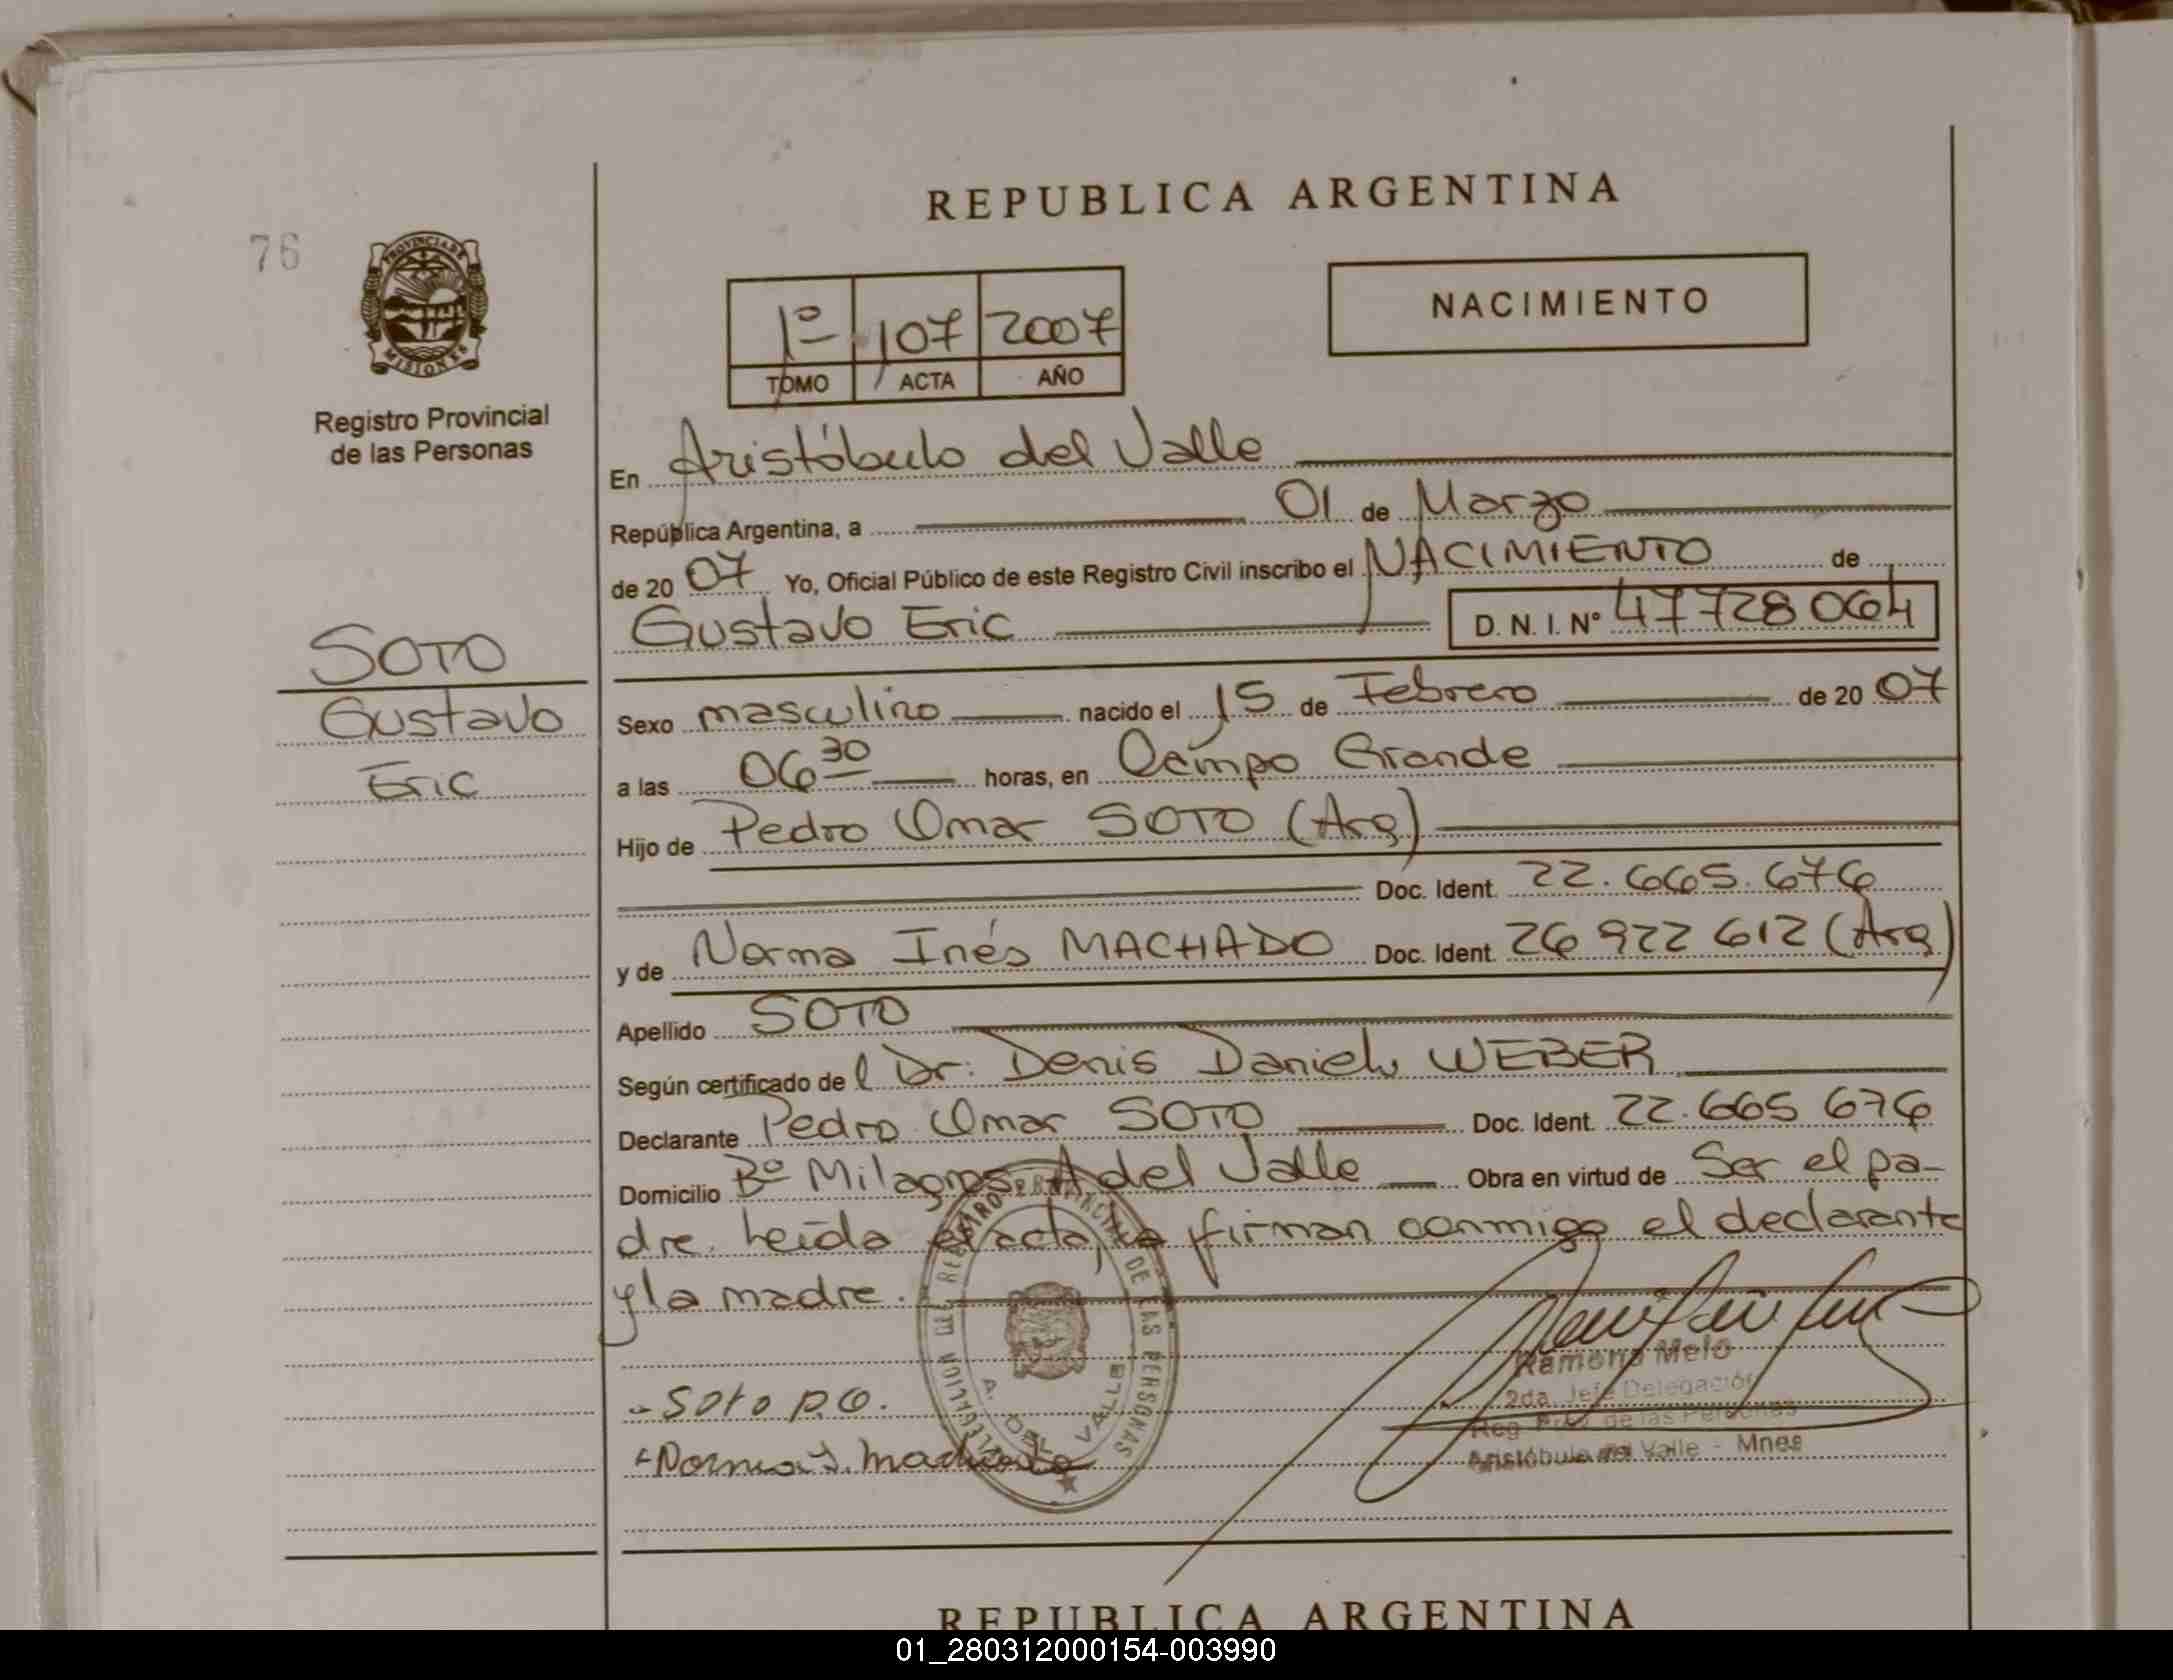 REPUBLICA ARGENTINA
76
PROVINCIA DE
MISIONES
Registro Provincial
de las Personas
1º 107 2007
TOMO ACTA AÑO
NACIMIENTO
En Aristóbulo del Valle
República Argentina, a 01 de Marzo
de 20 07 Yo, Oficial Público de este Registro Civil inscribo el NACIMIENTO de
Gustavo Eric D. N. I. Nº 47728064
SOTO
Gustavo
Eric
Sexo masculino nacido el 15 de Febrero de 20 07
a las 06 30 horas, en Campo Grande
Hijo de Pedro Omar SOTO (Arg)
Doc. Ident. 22.665.676
y de Norma Inés MACHADO Doc. Ident. 26 922 612 (Arg)
Apellido SOTO
Según certificado de l Dr. Denis Daniel WEBER
Declarante Pedro Omar SOTO Doc. Ident. 22.665 676
Domicilio Bº Milagros A del Valle Obra en virtud de Ser el pa-
dre. Leída el acta, la firman conmigo el declarante
y la madre.
DELEGACION DEL REGISTRO PROVINCIAL DE LAS PERSONAS
A. DEL VALLE
Ramona Melo
2da. Jefe Delegación
Reg. Prov. de las Personas
Aristóbulo del Valle - Mnes
- Soto P.O.
- Norma I. Machado
REPUBLICA ARGENTINA
01_280312000154-003990